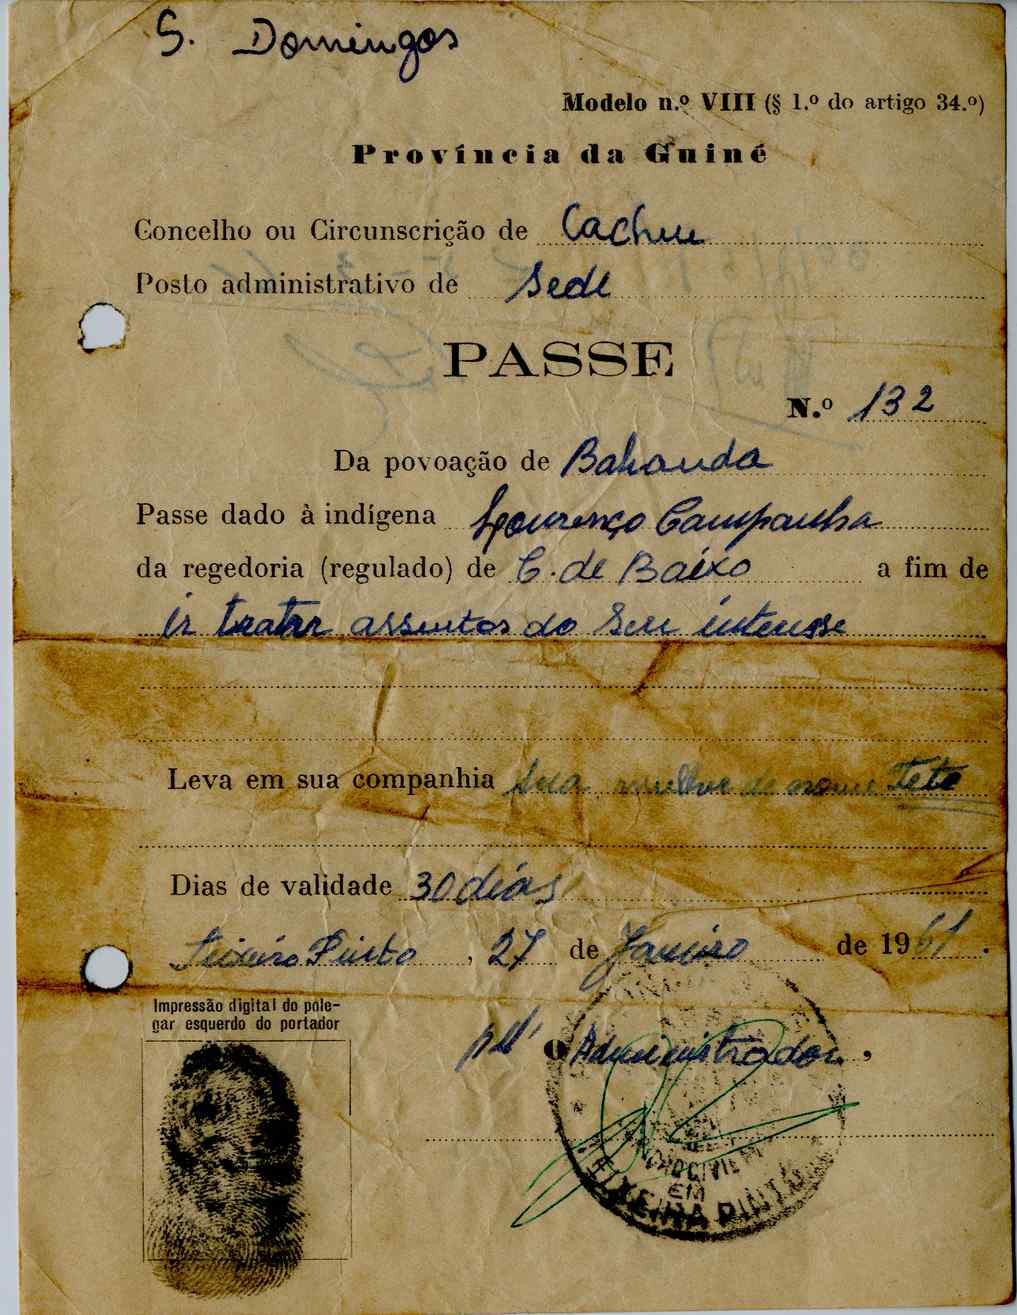 S. Domingos
Modelo n.º VIII (§ 1.º do artigo 34.º)
Província da Guiné
Concelho ou Circunscrição de Cacheu
Posto administrativo de Sede
PASSE
N.º 132
Da povoação de
Passe dado à indígena Lourenço Campanha
da regedoria (regulado) de C. de Baixo a fim de
ir tratar assuntos do seu interesse
Leva em sua companhia sua mulher de nome Teté
Dias de validade 30 dias
Teixeira Pinto, 27 de Janeiro de 1961.
Impressão digital do pole-
gar esquerdo do portador
O Administrador,
EM
TEIXEIRA PINTO